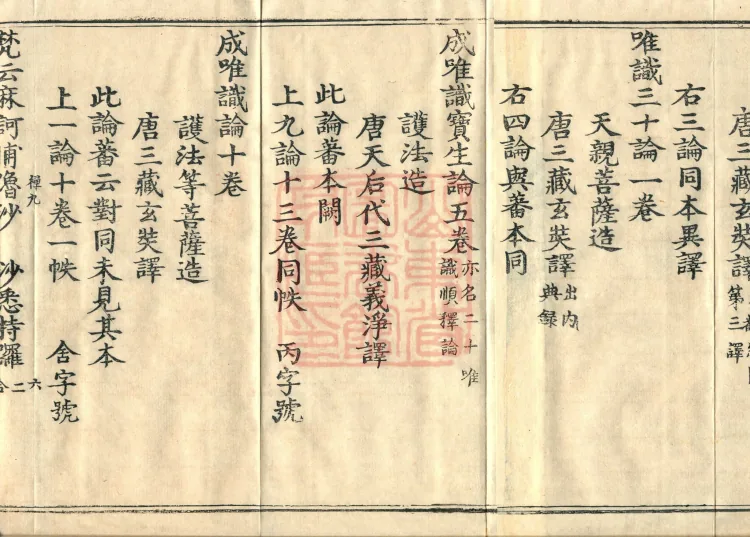 唐三藏玄奘譯 第三譯
右三論同本異譯
唯識三十論一卷
天親菩薩造
唐三藏玄奘譯 出內典録
右四論與蕃本同
成唯識寶生論五卷 亦名二十唯識順釋論
護法造
唐天后代三藏義淨譯
此論蕃本闕
上九論十三卷同帙 丙字號
成唯識論十卷
護法等菩薩造
唐三藏玄奘譯
此論蕃云對同未見其本
上一論十卷一帙 舍字號
禪九 六
梵云麻訶嚕沙 沙悉特羅 二合